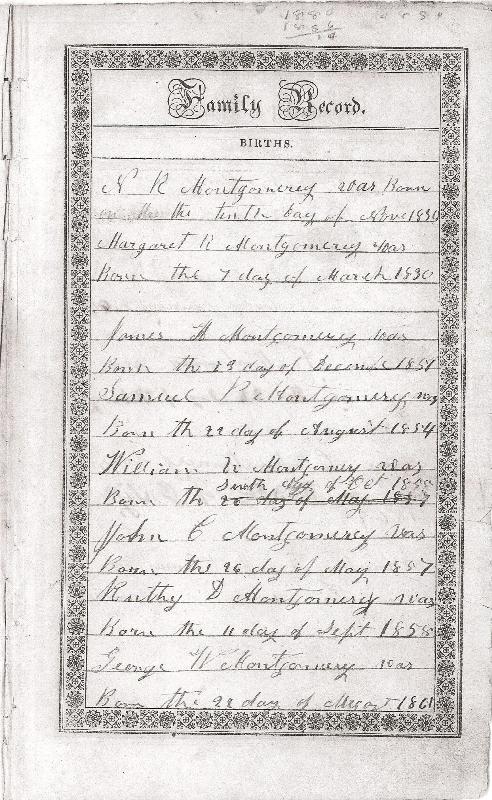 1886
Family Record.
BIRTHS.
N R Montgomerey was Born
on the the tenth day of Nove 1830
Margaret R Montgomerey was
Born the 7 day of March 1830
James H Montgomerey was
Born the 23 day of Decembe 1851
Samuel P Montgomerey was
Born th 22 day of August 1854
William R Montgomery was
day of Oct 1855
Born the 26 day of May 1857
John C Montgomerey was
Born the 26 day of May 1857
Ruthy D Montgomerey was
Born the 11 day of Sept 1858
George W Montgomerey was
Born the 22 day of 1861